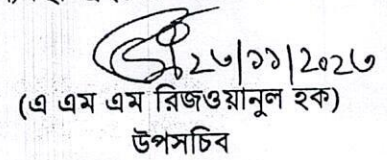 ২৩|১১|২০২৩
(এ এম এম রিজওয়ানুল হক)
উপসচিব